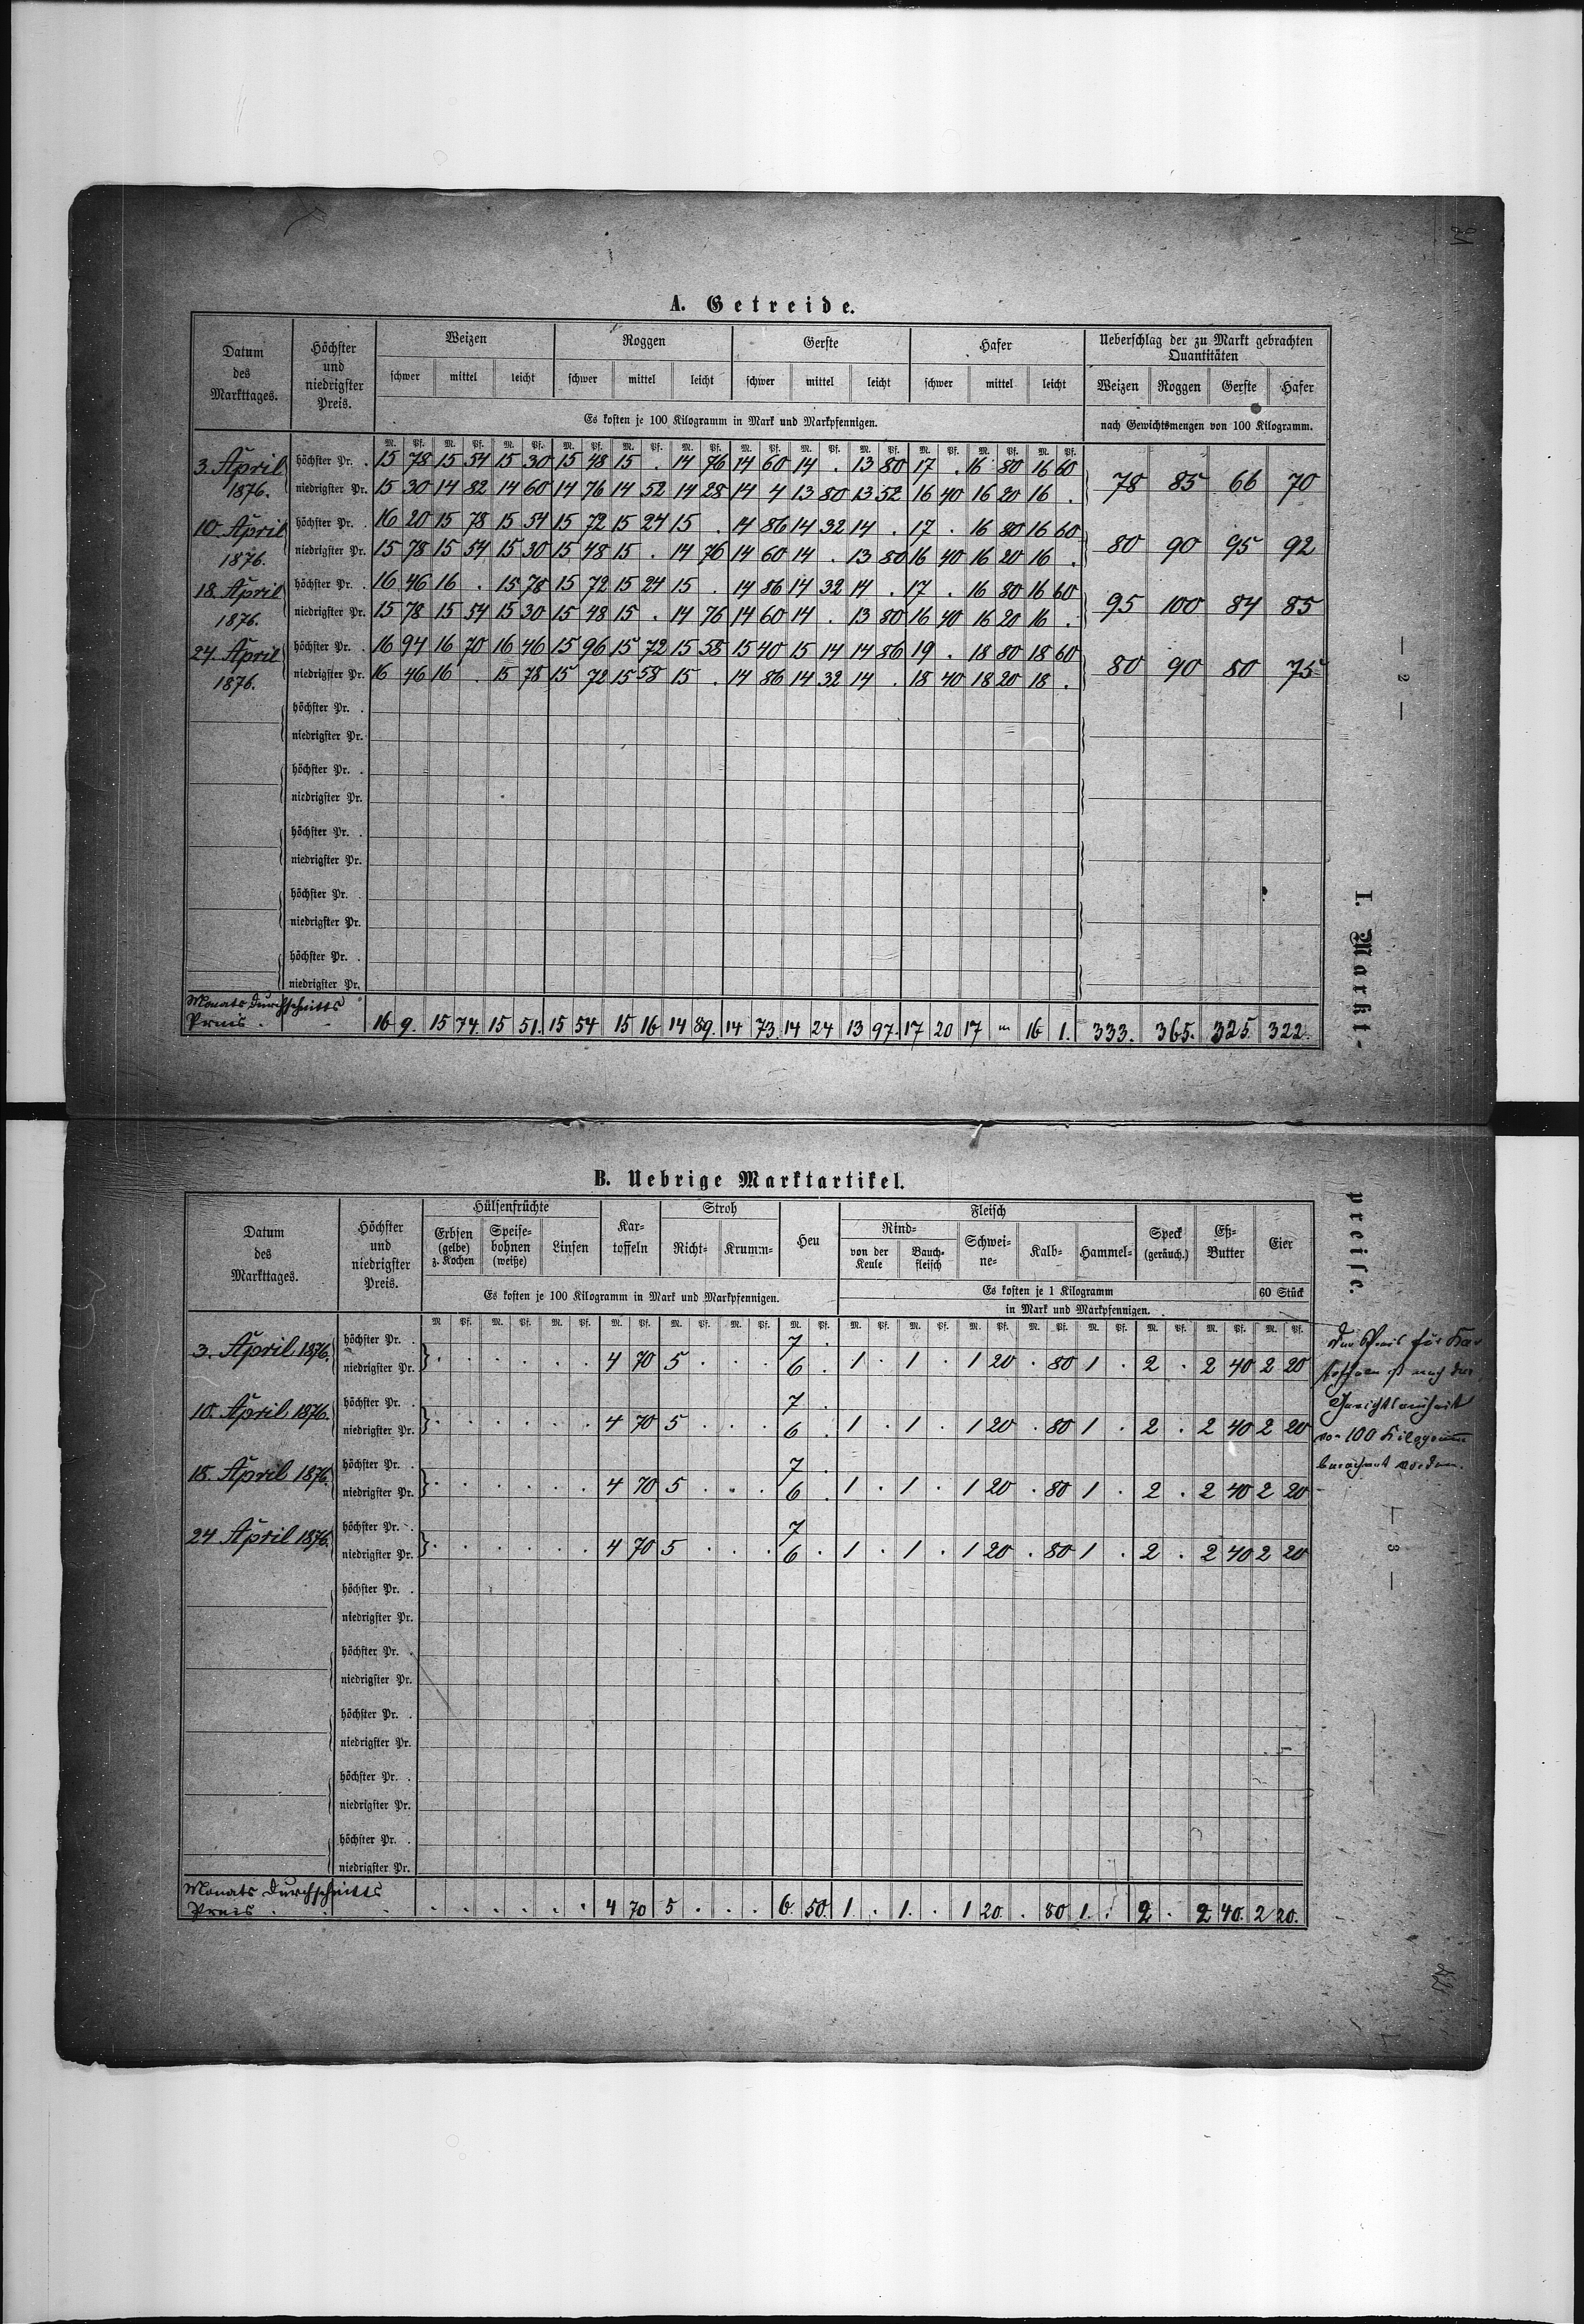 A. Getreide.
Datum des Markttages. Höchster und niedrigster Preis. Weizen Roggen Gerste Hafer Ueberschlag der zu Markt gebrachten Quantitäten
schwer mittel leicht schwer mittel leicht schwer mittel leicht schwer mittel leicht Weizen Roggen Gerste Hafer
Es kosten je 100 Kilogramm in Mark und Markpfennigen. nach Gewichtsmengen von 100 Kilogramm.
M. Pf. M. Pf. M. Pf. M. Pf. M. Pf. M. Pf. M. Pf. M. Pf. M. Pf. M. Pf. M. Pf. M. Pf.
3. April höchster Pr. . 15 78 15 54 15 30 15 48 15 . 14 76 14 60 14 . 13 80 17 . 16 80 16 60
1876. niedrigster Pr. 15 30 14 82 14 60 14 76 14 52 14 28 14 4 13 80 13 52 16 40 16 20 16 . 78 85 66 70
10. April höchster Pr. . 16 20 15 78 15 54 15 72 15 24 15 . 14 86 14 32 14 . 17 . 16 80 16 60
1876. niedrigster Pr. 15 78 15 54 15 30 15 48 15 . 14 76 14 60 14 . 13 80 16 40 16 20 16 . 80 90 95 92
18. April höchster Pr. . 16 46 16 . 15 78 15 72 15 24 15 . 14 86 14 32 14 . 17 . 16 80 16 60
1876. niedrigster Pr. 15 78 15 54 15 30 15 48 15 . 14 76 14 60 14 . 13 80 16 40 16 20 16 . 95 100 84 85
24. April höchster Pr. . 16 94 16 70 16 46 15 96 15 72 15 58 15 40 15 14 14 86 19 . 18 80 18 60
1876. niedrigster Pr. 16 46 16 . 15 78 15 72 15 58 15 . 14 86 14 32 14 . 18 40 18 20 18 . 80 90 80 75
höchster Pr. .
niedrigster Pr.
höchster Pr. .
niedrigster Pr.
höchster Pr. .
niedrigster Pr.
höchster Pr. .
niedrigster Pr.
höchster Pr. .
niedrigster Pr.
Monats Durchschnitts
Preis . 16 9. 15 74. 15 51. 15 54 15 16 14 89. 14 73. 14 24 13 97. 17 20 17 " 16 1. 333. 365. 325. 322.
— 2 —
I. Markt-
B. Uebrige Marktartikel.
Datum des Markttages. Höchster und niedrigster Preis. Hülsenfrüchte Kartoffeln Stroh Heu Fleisch Speck (geräuch.) Eß-Butter Eier
Erbsen (gelbe) z. Kochen Speisebohnen (weiße) Linsen Richt- Krumm- Rind- von der Keule Bauchfleisch Schweine- Kalb- Hammel-
Es kosten je 100 Kilogramm in Mark und Markpfennigen. Es kosten je 1 Kilogramm 60 Stück
in Mark und Markpfennigen.
M Pf. M. Pf. M. Pf. M. Pf. M. Pf. M. Pf. M. Pf. M. Pf. M. Pf. M. Pf. M. Pf. M. Pf. M. Pf. M. Pf. M. Pf.
3. April 1876. höchster Pr. . 7 .
niedrigster Pr. . . . . . . 4 70 5 . . . 6 . 1 . 1 . 1 20 . 80 1 . 2 . 2 40 2 20
10. April 1876. höchster Pr. . 7 .
niedrigster Pr. . . . . . . 4 70 5 . . . 6 . 1 . 1 . 1 20 . 80 1 . 2 . 2 40 2 20
18. April 1876. höchster Pr. . 7 .
niedrigster Pr. . . . . . . 4 70 5 . . . 6 . 1 . 1 . 1 20 . 80 1 . 2 . 2 40 2 20
24 April 1876. höchster Pr. . 7
niedrigster Pr. . . . . . . 4 70 5 . . . 6 . 1 . 1 . 1 20 . 80 1 . 2 . 2 40 2 20
höchster Pr. .
niedrigster Pr.
höchster Pr. .
niedrigster Pr.
höchster Pr. .
niedrigster Pr.
höchster Pr. .
niedrigster Pr.
höchster Pr. .
niedrigster Pr.
Monats Durchschnitts
Preis . . . . . . . . 4 70 5 . . . 6. 50. 1 . 1. . 1 20. . 80 1. . 2 . 2 40. 2 20.
preise.
Der Preis für Kar
toffeln ist nach der
Gewichtseinheit
von 100 Kilogramm
berechnet worden.
— 3 —